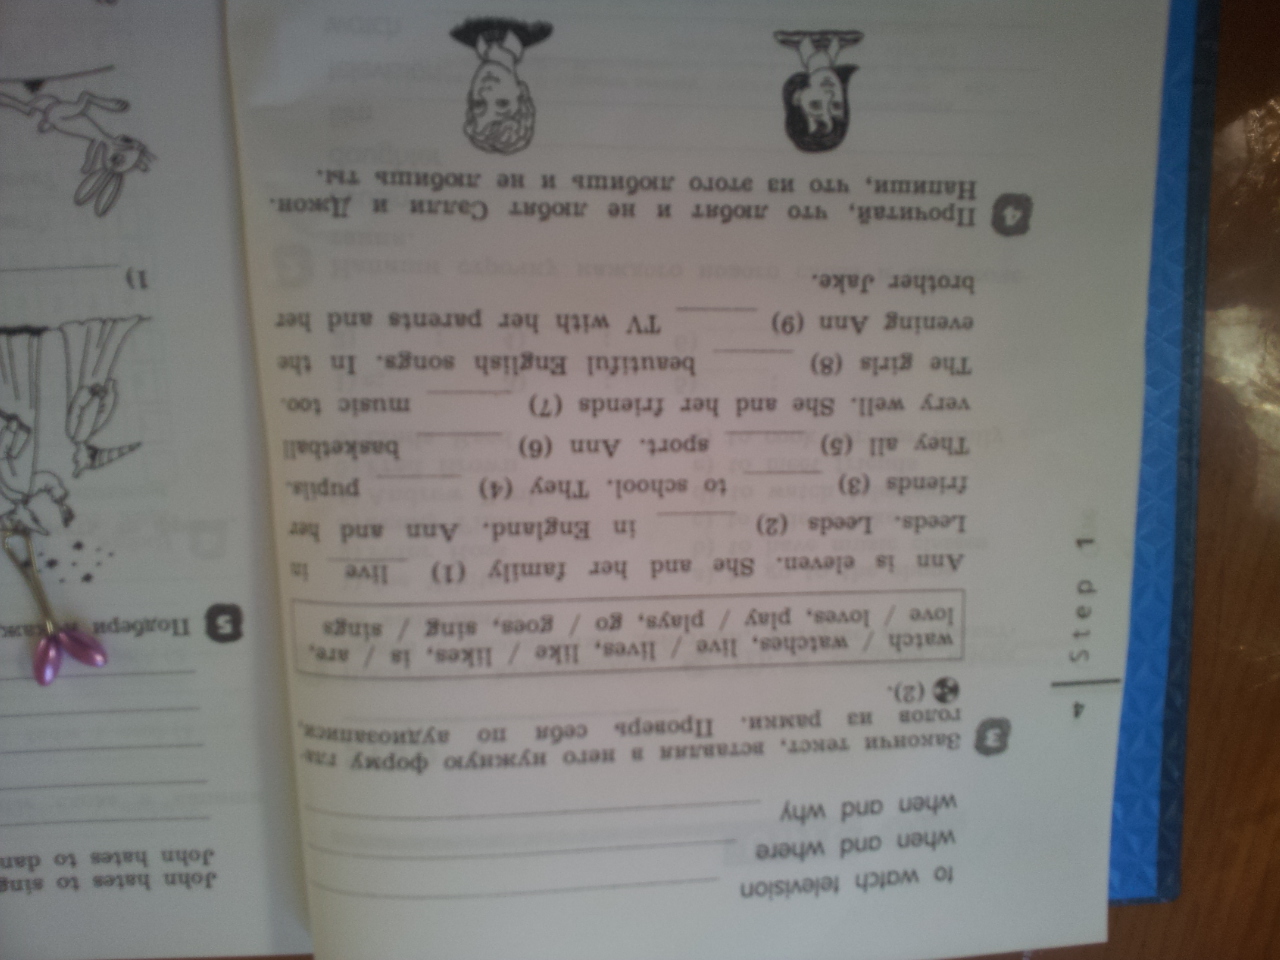 to watch television
when and where
when and why
3 Закончи текст, вставляя в него нужную форму гла-
голов из рамки. Проверь себя по аудиозаписи,
(2).
watch / watches, live / lives, like / likes, is / are,
love / loves, play / plays, go / goes, sing / sings
Ann is eleven. She and her family (1) live in
Leeds. Leeds (2) ____ in England. Ann and her
friends (3) ____ to school. They (4) ____ pupils.
They all (5) ____ sport. Ann (6) ____ basketball
very well. She and her friends (7) ____ music too.
The girls (8) ____ beautiful English songs. In the
evening Ann (9) ____ TV with her parents and her
brother Jake.
4 Прочитай, что любят и не любят Салли и Джон.
Напиши, что из этого любишь и не любишь ты.
4
Step 1
John hates to sing
John hates to
5 Подбери
1)